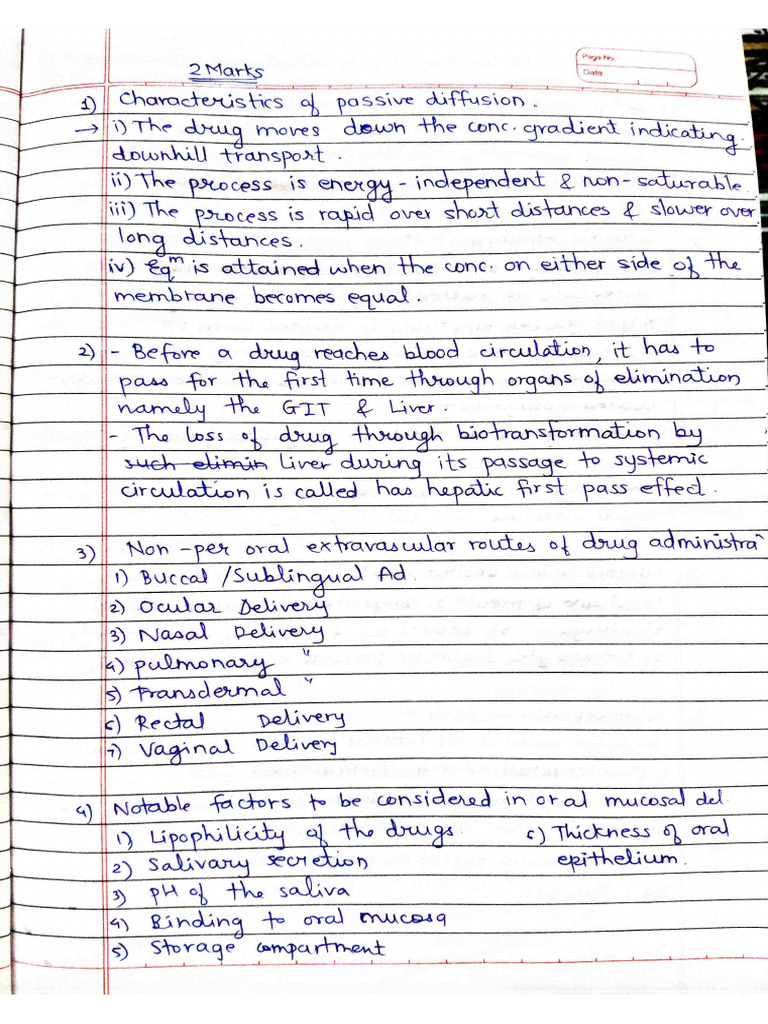 Page No.
Date
2 Marks
1) Characteristics of passive diffusion.
→ i) The drug moves down the conc. gradient indicating
downhill transport.
ii) The process is energy-independent & non-saturable
iii) The process is rapid over short distances & slower over
long distances.
iv) Eqm is attained when the conc. on either side of the
membrane becomes equal.
2) - Before a drug reaches blood circulation, it has to
pass for the first time through organs of elimination
namely the GIT & Liver.
- The loss of drug through biotransformation by
such elimin liver during its passage to systemic
circulation is called has hepatic first pass effect.
3) Non-per oral extravascular routes of drug administra
1) Buccal/Sublingual Ad.
2) Ocular Delivery
3) Nasal Delivery
4) Pulmonary "
5) Transdermal "
6) Rectal Delivery
7) Vaginal Delivery
4) Notable factors to be considered in oral mucosal del.
1) Lipophilicity of the drugs.
2) Salivary secretion
3) pH of the saliva
4) Binding to oral mucosa
5) Storage compartment
6) Thickness of oral
epithelium.